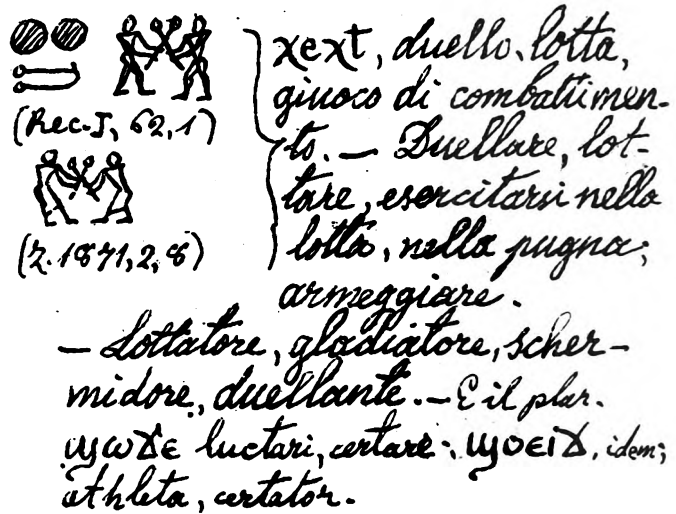 (Rec. I, 62, 1)
(Z. 1871, 2, 8)
χeχt, duello, lotta,
giuoco di combattimen-
to. — Duellare, lot-
tare, esercitarsi nella
lotta, nella pugna;
armeggiare.
— Lottatore, gladiatore, scher-
midore, duellante. — E il plur.
ϣⲱϫⲉ luctari, certare; ϣⲟⲉⲓϫ, idem;
athleta, certator.